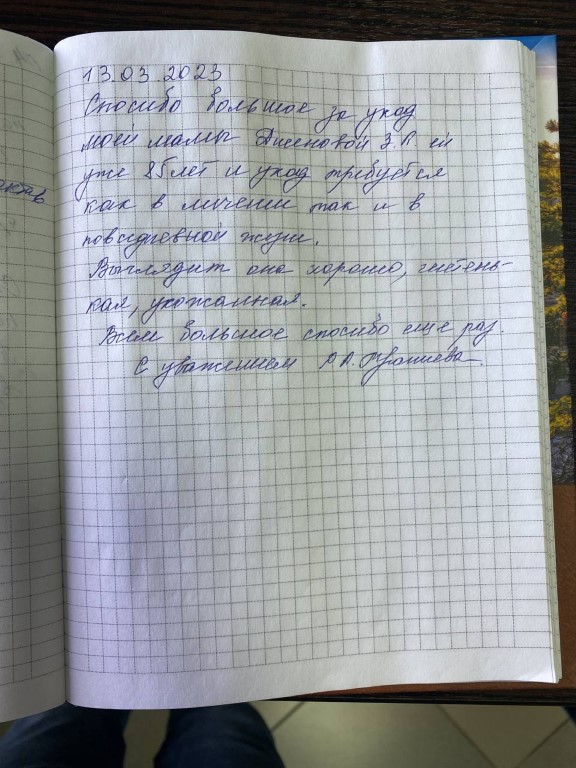 13.03.2023
Спосибо большое за уход
моей мамы З.П. ей
уже 85 лет и уход требуется
как в лечении так и в
повседневной жизни.
Выглядит она хорошо, чистень-
кая, ухоженная.
Всем большое спосибо еще раз.
С уважением